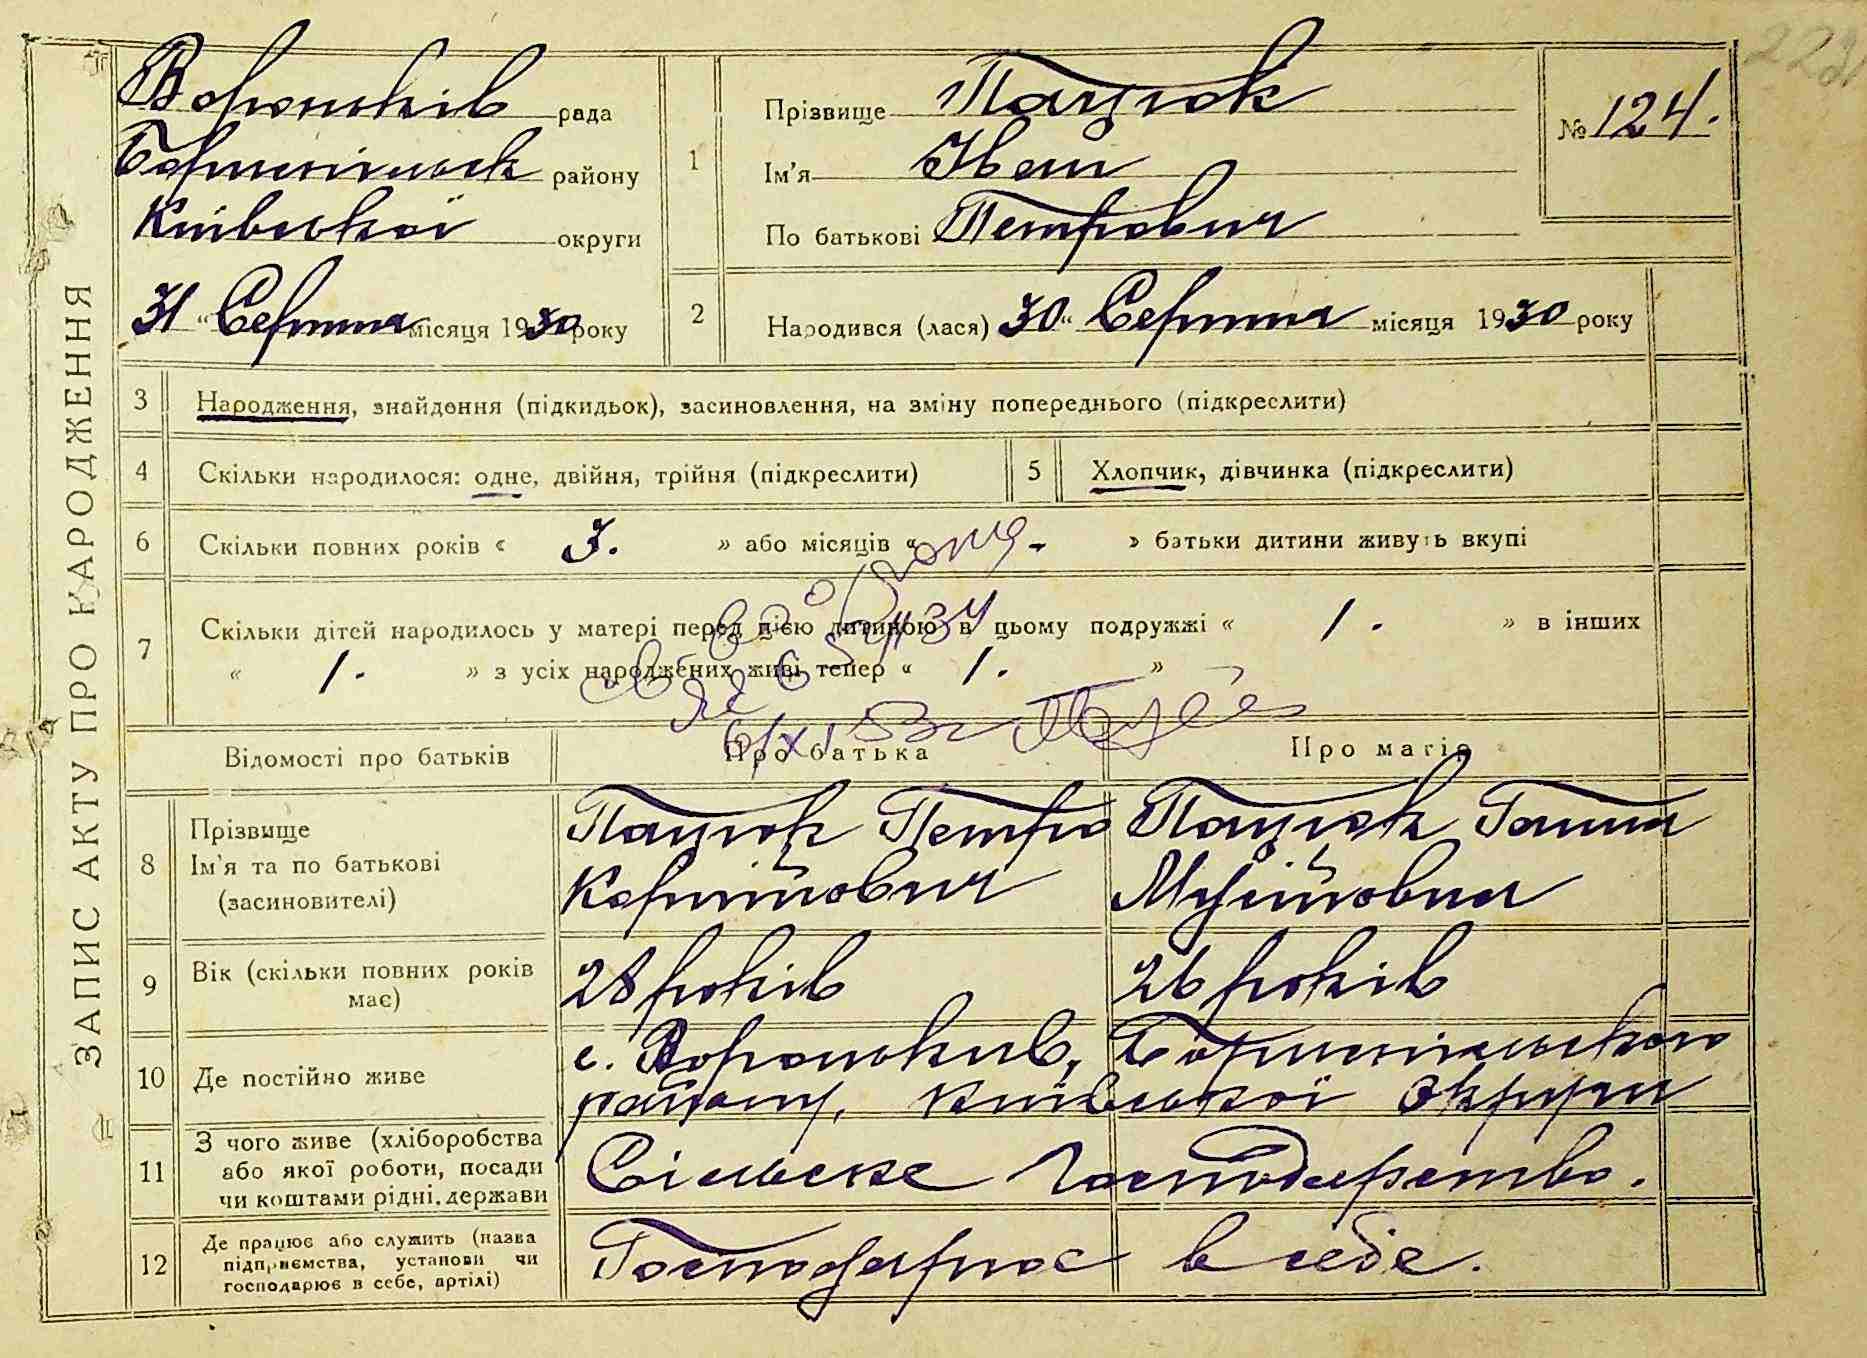 ЗАПИС АКТУ ПРО НАРОДЖЕННЯ
Вороньків рада
Бориспільськ району
Київської округи
31 " Серпня місяця 1930 року
1
Прізвище Пацюк
Ім'я Іван
По батькові Петрович
№ 124.
2
Народився (лася) 30 " Серпня місяця 1930 року
3 Народження, знайдення (підкидьок), засиновлення, на зміну попереднього (підкреслити)
4 Скільки народилося: одне, двійня, трійня (підкреслити)
5 Хлопчик, дівчинка (підкреслити)
6 Скільки повних років « 3. » або місяців « - » батьки дитини живуть вкупі
7 Скільки дітей народилось у матері перед цією дитиною в цьому подружжі « 1. » в інших
« 1. » з усіх народжених живі тепер « 1. »
Відомості про батьків Про батька Про матір
8 Прізвище
Ім'я та по батькові
(засиновителі)
Пацюк Петро
Карпович
Пацюк Ганна
Мусійовна
9 Вік (скільки повних років
має)
28 років
26 років
10 Де постійно живе
с. Вороньків, Бориспільського
району, Київської округи
11 З чого живе (хліборобства
або якої роботи, посади
чи коштами рідні, держави
Сільське Господарство.
12 Де працює або служить (назва
підприємства, установи чи
господарює в себе, артілі)
Господарює в себе.